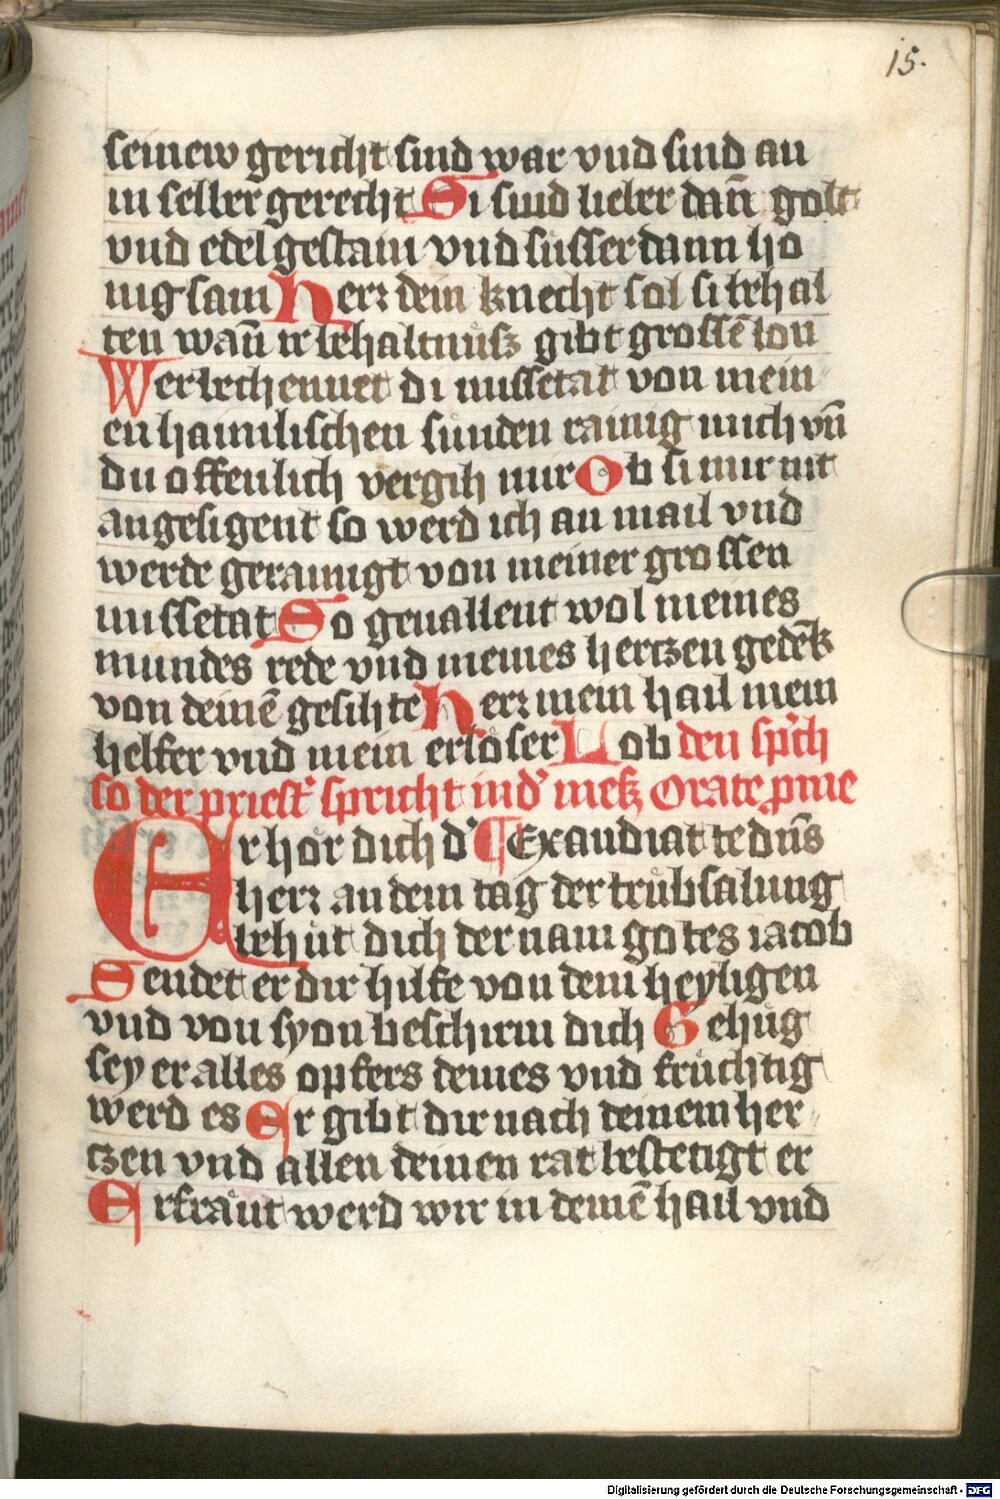 15.
seinew gericht sind war vnd sind an
in selber gerecht Si sind lieber dañ golt
vnd edel gestain vnd süsser dann ho
nigsam herz dein knecht sol si behal
ten wañ ir behaltnüsz gibt grossē lon
Wer bechennet di missetat von mein
en haimlischen sünden rainig mich vñ
du offenlich vergih mir Ob si mir nit
angesigent so werd ich an mail vnd
werde gerainigt von meiner grossen
missetat So geuallent wol meines
mundes rede vnd meines hertzen gedēk
von deinē gesihte herz mein hail mein
helfer vnd mein erlöser Lob den sp'ch
so der priest' spricht in d' mesz Orate p me
Erhör dich d' ¶ Exaudiat te dñs
herz an dem tag der trübsalung
behüt dich der nam gotes iacob
Sendet er dir hilfe von dem heyligen
vnd von syon beschirm dich Gehüg
sey er alles opfers deines vnd früchtig
werd es Er gibt dir nach deinem her
tzen vnd allen deinen rat bestetigt er
Erfräut werd wir in deinē hail vnd
Digitalisierung gefördert durch die Deutsche Forschungsgemeinschaft - DFG